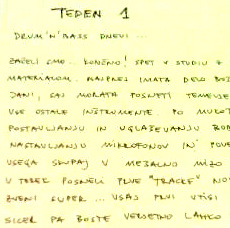 TEDEN 1
DRUM'N'BASS DNEVI ...
ZAČELI SMO... KONČNO! SPET V STUDIU Z
MATERIALOM. NAJPREJ IMATA DELO
JANI, SAJ MORATA POSNETI TEMELJE
VSE OSTALE INŠTRUMENTE. PO
POSTAVLJANJU IN UGLAŠEVANJU
NASTAVLJANJU MIKROFONOV IN
VSEGA SKUPAJ V MEŠALNO MIZO
V TOREK POSNELI PRVE "TRACKE"
ZVENI SUPER ... VSAJ PRVI VTISI
SICER PA BOSTE VERJETNO LAHKO